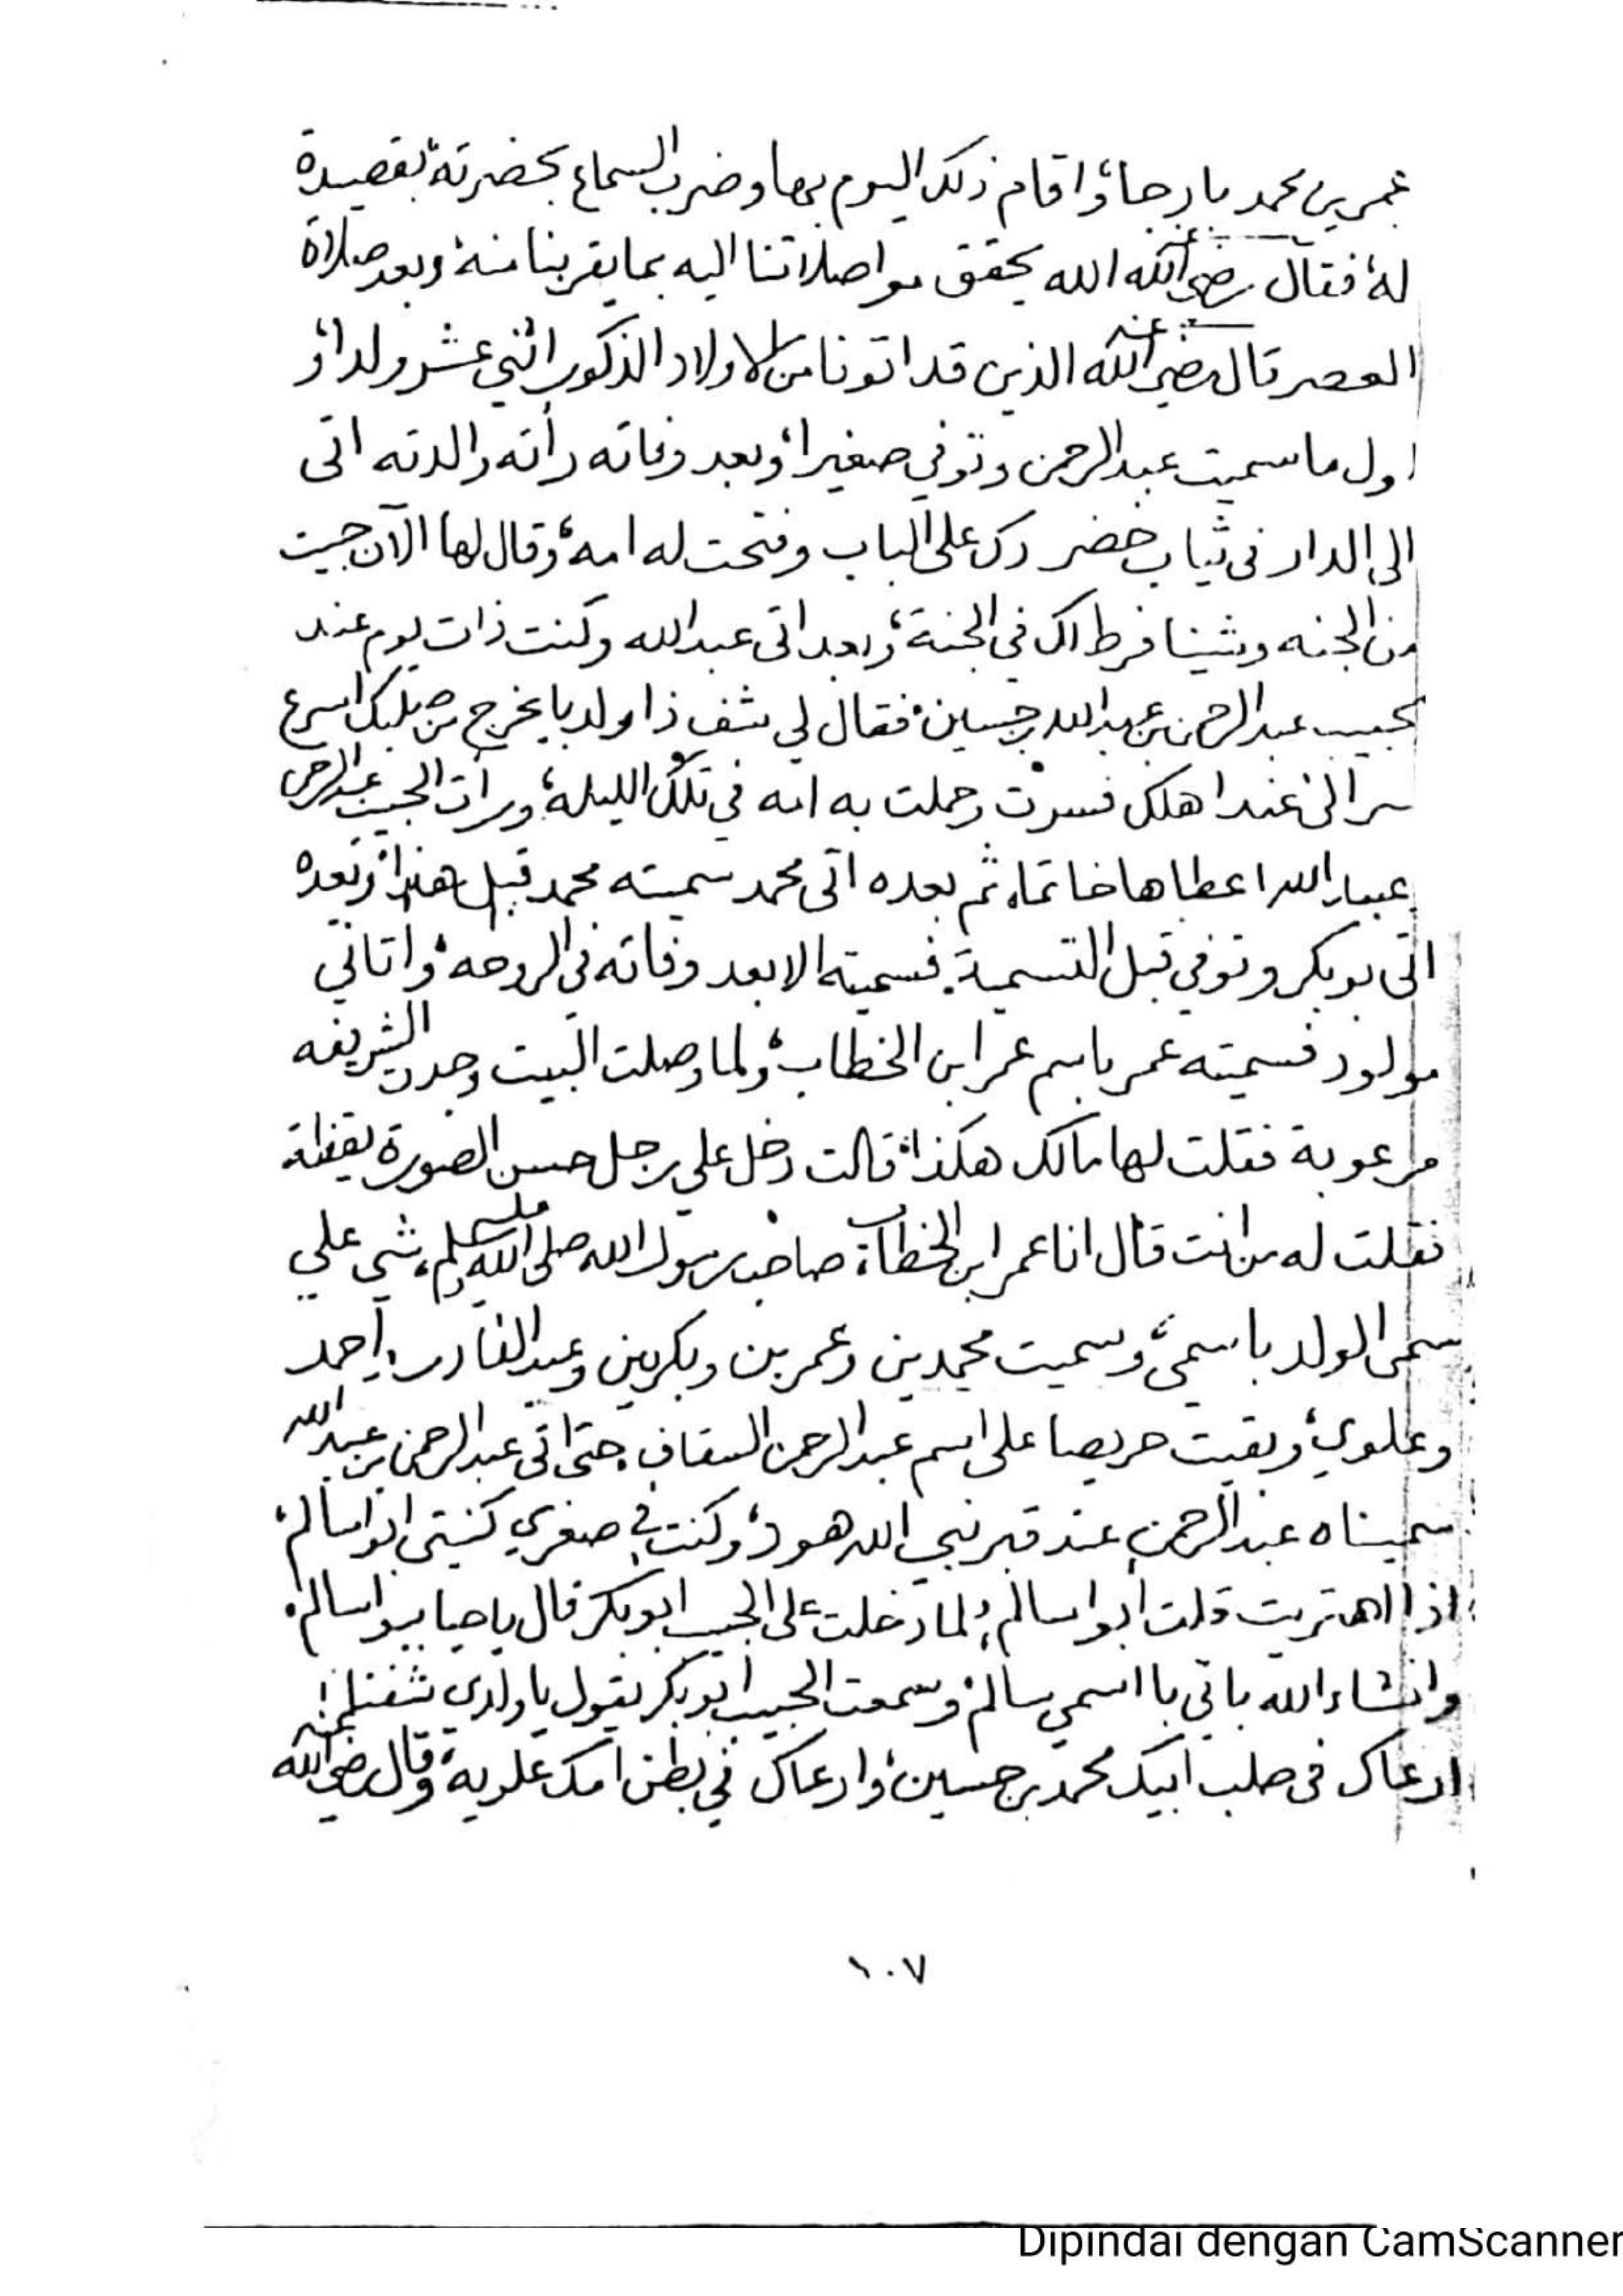 عمر بن محمد بارجاء، واقام ذلك اليوم بها وضرب السماع بحضرته بقصيدة
له، فقال رضي الله عنه الله يحقق مواصلاتنا اليه بما يقربنا منه، وبعد صلاة
العصر قال رضي الله عنه الذين قد اتونا من الاولاد الذكور اثني عشر ولدا، و
اول ما سميت عبدالرحمن وتوفي صغيرا، وبعد وفاته رأته والدته اتى
الى الدار في ثياب خضر دك على الباب وفتحت له امه، وقال لها الآن جيت
من الجنه وشينا فرط لك في الجنة، وبعد اتى عبدالله وكنت ذات يوم عند
لحبيب عبدالرحمن بن عبدالله بن حسين، فقال لي شف ذا ولد با يخرج من صلبك اسرع
سر الى عند اهلك فسرت وحملت به امه في تلك الليله، ورأت الحبيب عبدالرحمن
بن عبدالله اعطاها خاتما، ثم بعده اتى محمد سميته محمد قبل هذا، وبعده
اتى بوبكر وتوفي قبل التسمية. فسميته الا بعد وفاته في الروحه، واتاني
مولود فسميته عمر باسم عمر ابن الخطاب، ولما وصلت البيت وجدت الشريفه
مرعوبة فقلت لها مالك هكذا، قالت دخل علي رجل حسن الصورة يقظة
فقلت له من انت قال انا عمر ابن الخطاب، صاحب رسول الله صلى الله عليه وسلم، شي علي
سمى الولد باسمي، وسميت محمدين وعمرين وبكرين وعبدالقادر، واحمد
وعلوي، وبقيت حريصا على اسم عبدالرحمن السقاف. حتى اتى عبدالرحمن بن عبدالله
سميناه عبدالرحمن عند قبر نبي الله هود، وكنت في صغري كنيتي ابوا سالم،
اذا اهتريت قلت ابوا سالم، ولما دخلت على الحبيب ابوبكر قال ياحيا ببوا سالم.
وانشاء الله باتي با اسمي سالم، وسمعت الحبيب ابوبكر يقول يا ولدي شفنا
ارعاك في صلب ابيك محمد بن حسين، وارعاك في بطن امك علويه، وقال رضي الله عنه
١٠٧
Dipindai dengan CamScanner